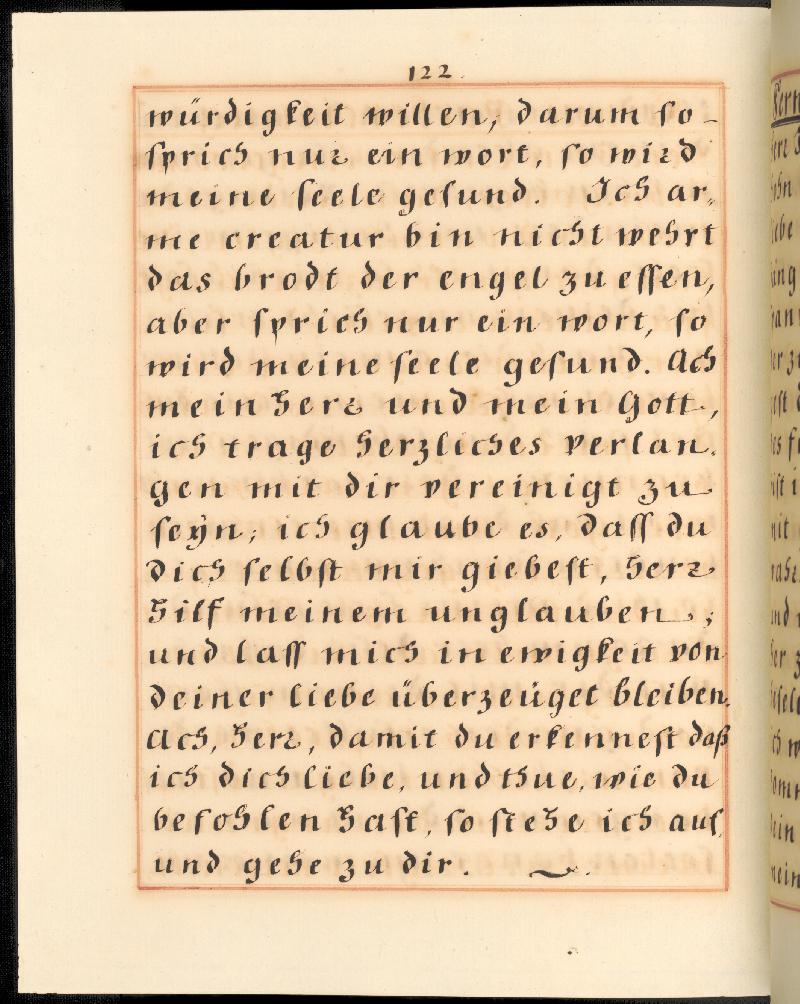 122.
würdigkeit willen, darum so-
sprich nur ein wort, so wird
meine seele gesund. Ich ar,
me creatur bin nicht wehrt
das brodt der engel zu essen,
aber sprich nur ein wort, so
wird meine seele gesund. Ach
mein Herr und mein Gott,
ich trage herzliches verlan,
gen mit dir vereinigt zu
seÿn; ich glaube es, dass du
dich selbst mir giebest, Herr
Hilf meinem unglauben;
und lass mich in ewigkeit von
deiner liebe überzeüget bleiben.
Ach, Herr, damit du erkennest daß
ich dich liebe, und thue, wie du
befohlen hast, so stehe ich auf,
und gehe zu dir.